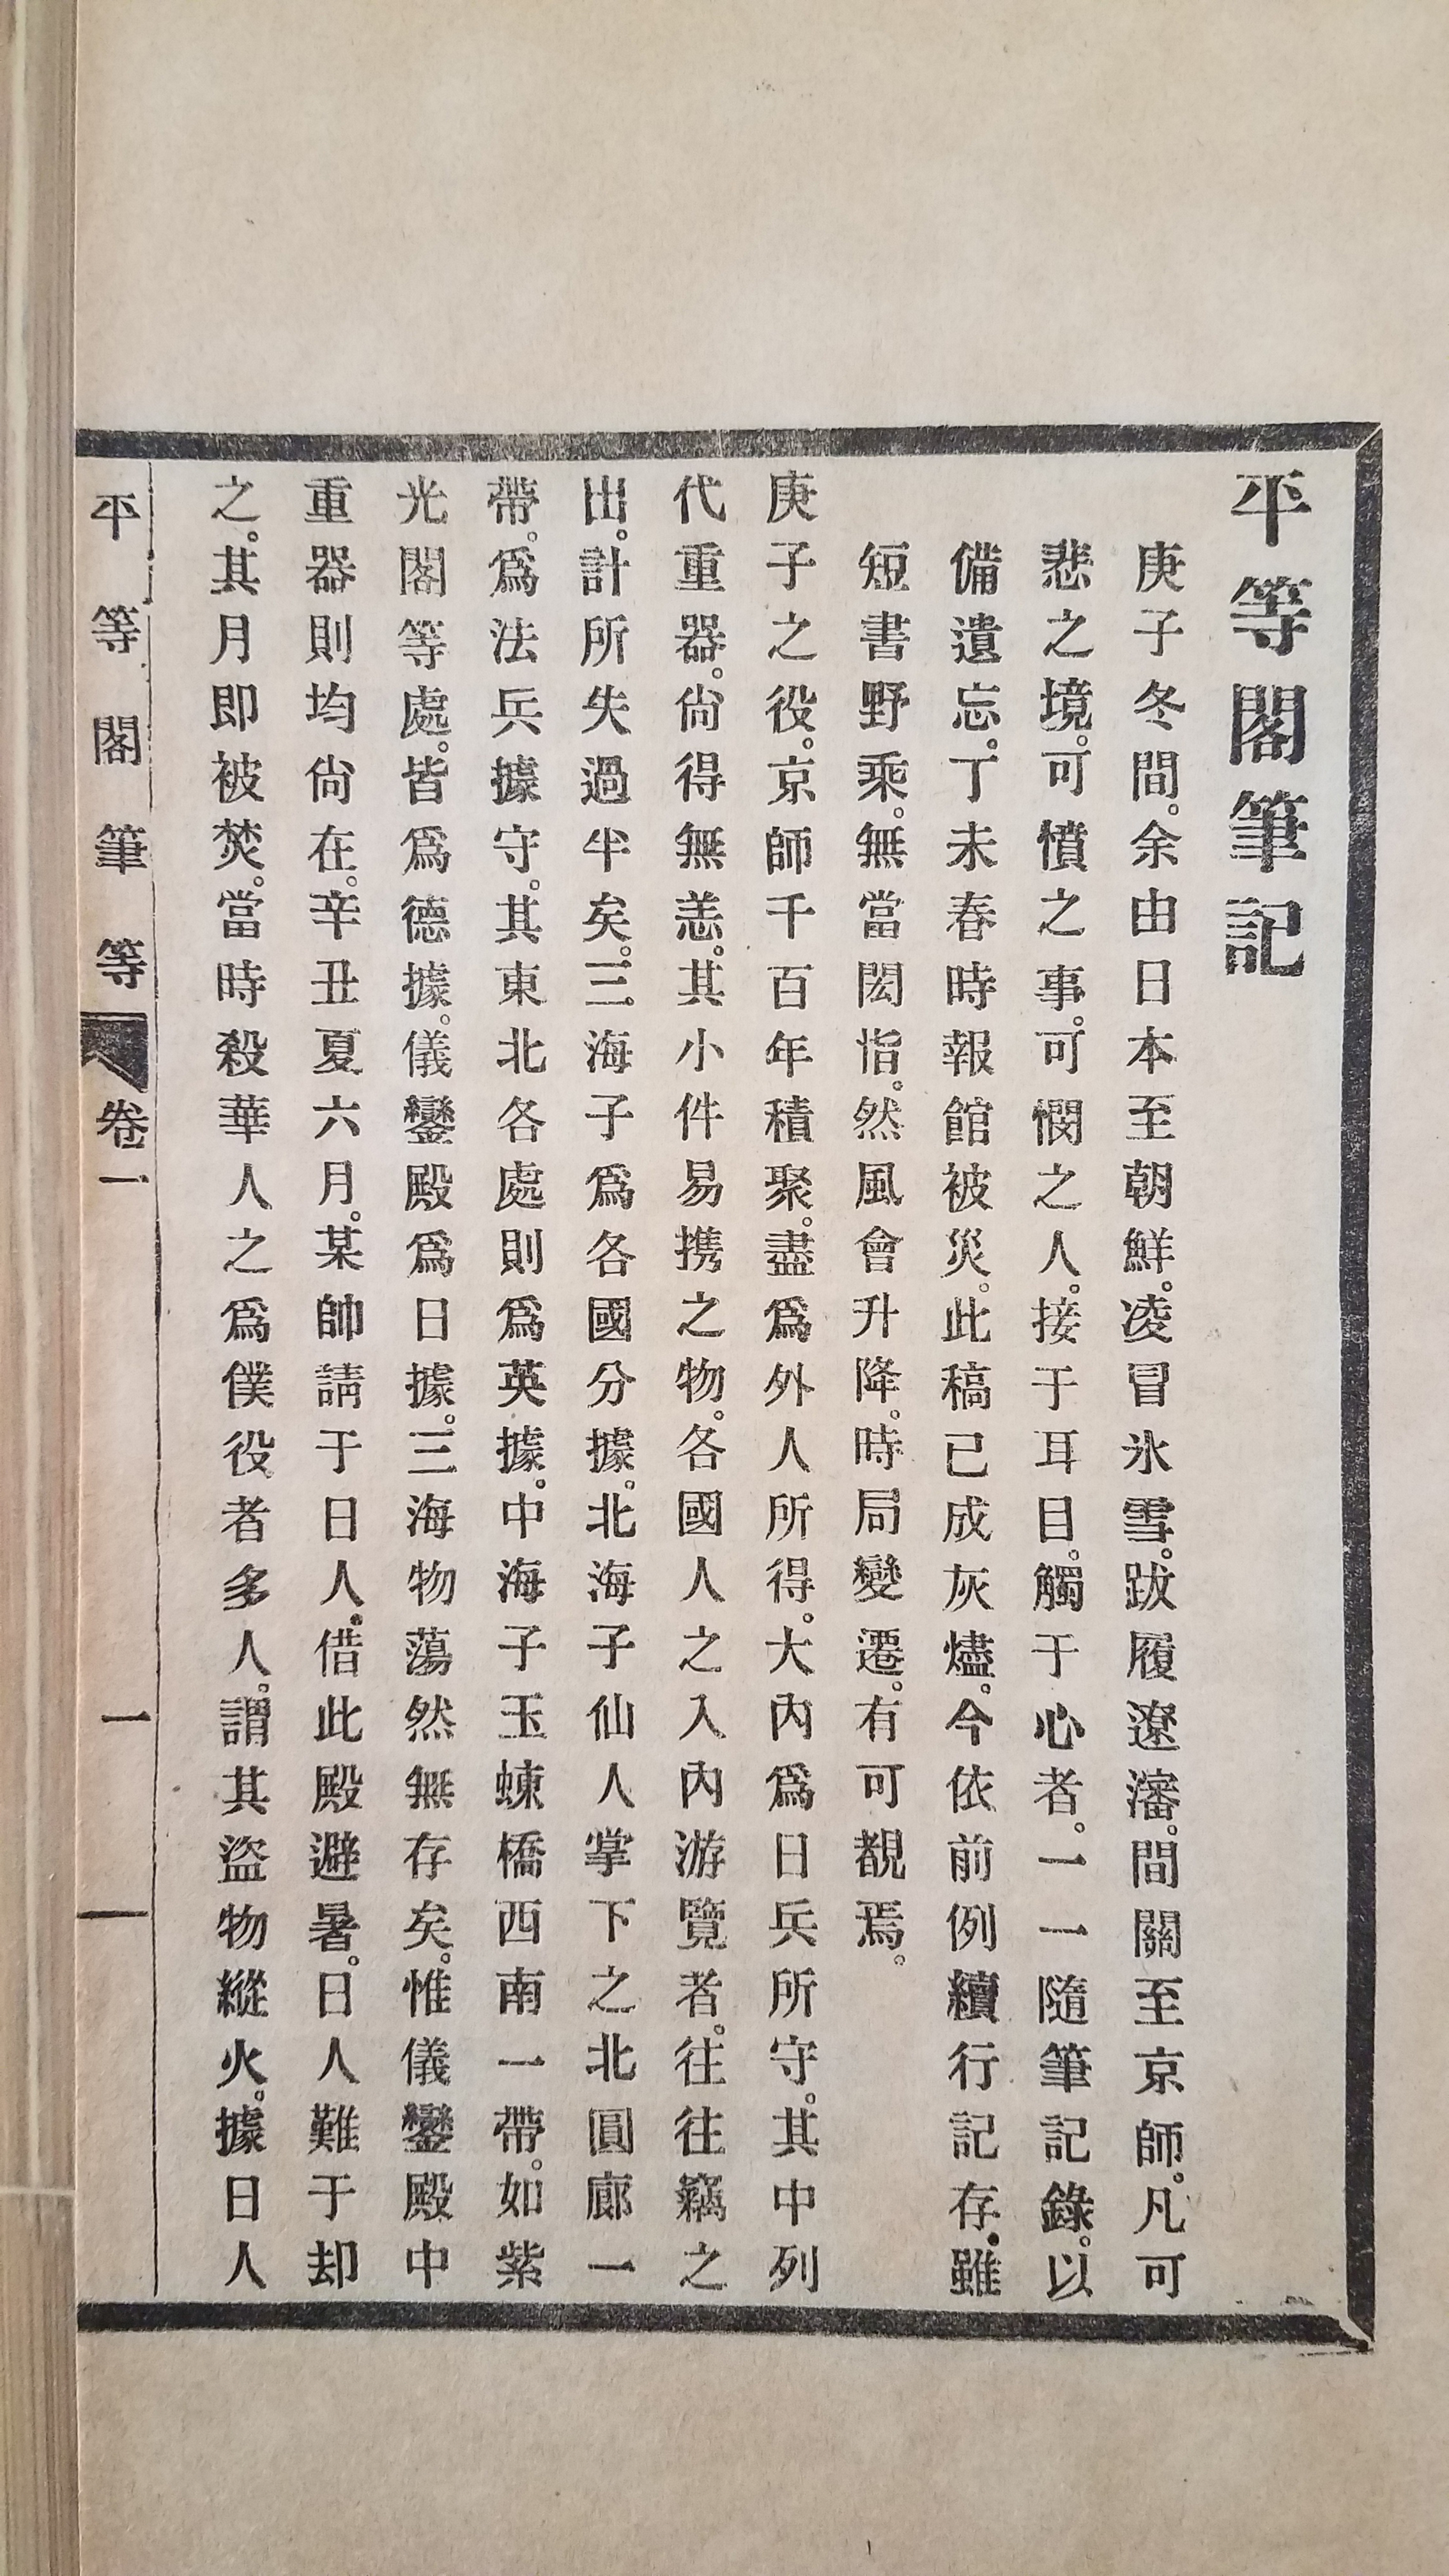 平等閣筆記
庚子冬間。余由日本至朝鮮。凌冒氷雪。跋履遼瀋。間關至京師。凡可
悲之境。可憤之事。可憫之人。接于耳目。觸于心者。一一隨筆記錄。以
備遺忘。丁未春時報館被災。此稿已成灰燼。今依前例續行記存。雖
短書野乘。無當閎恉。然風會升降。時局變遷。有可覩焉。
庚子之役。京師千百年積聚。盡爲外人所得。大內爲日兵所守。其中列
代重器。尙得無恙。其小件易携之物。各國人之入內游覽者。往往竊之
出。計所失過半矣。三海子爲各國分據。北海子仙人掌下之北圓廊一
帶。爲法兵據守。其東北各處則爲英據。中海子玉蝀橋西南一帶。如紫
光閣等處。皆爲德據。儀鑾殿爲日據。三海物蕩然無存矣。惟儀鑾殿中
重器則均尙在。辛丑夏六月。某帥請于日人。借此殿避暑。日人難于却
之。其月即被焚。當時殺華人之爲僕役者多人。謂其盜物縱火。據日人
平等閣筆等 卷一 一